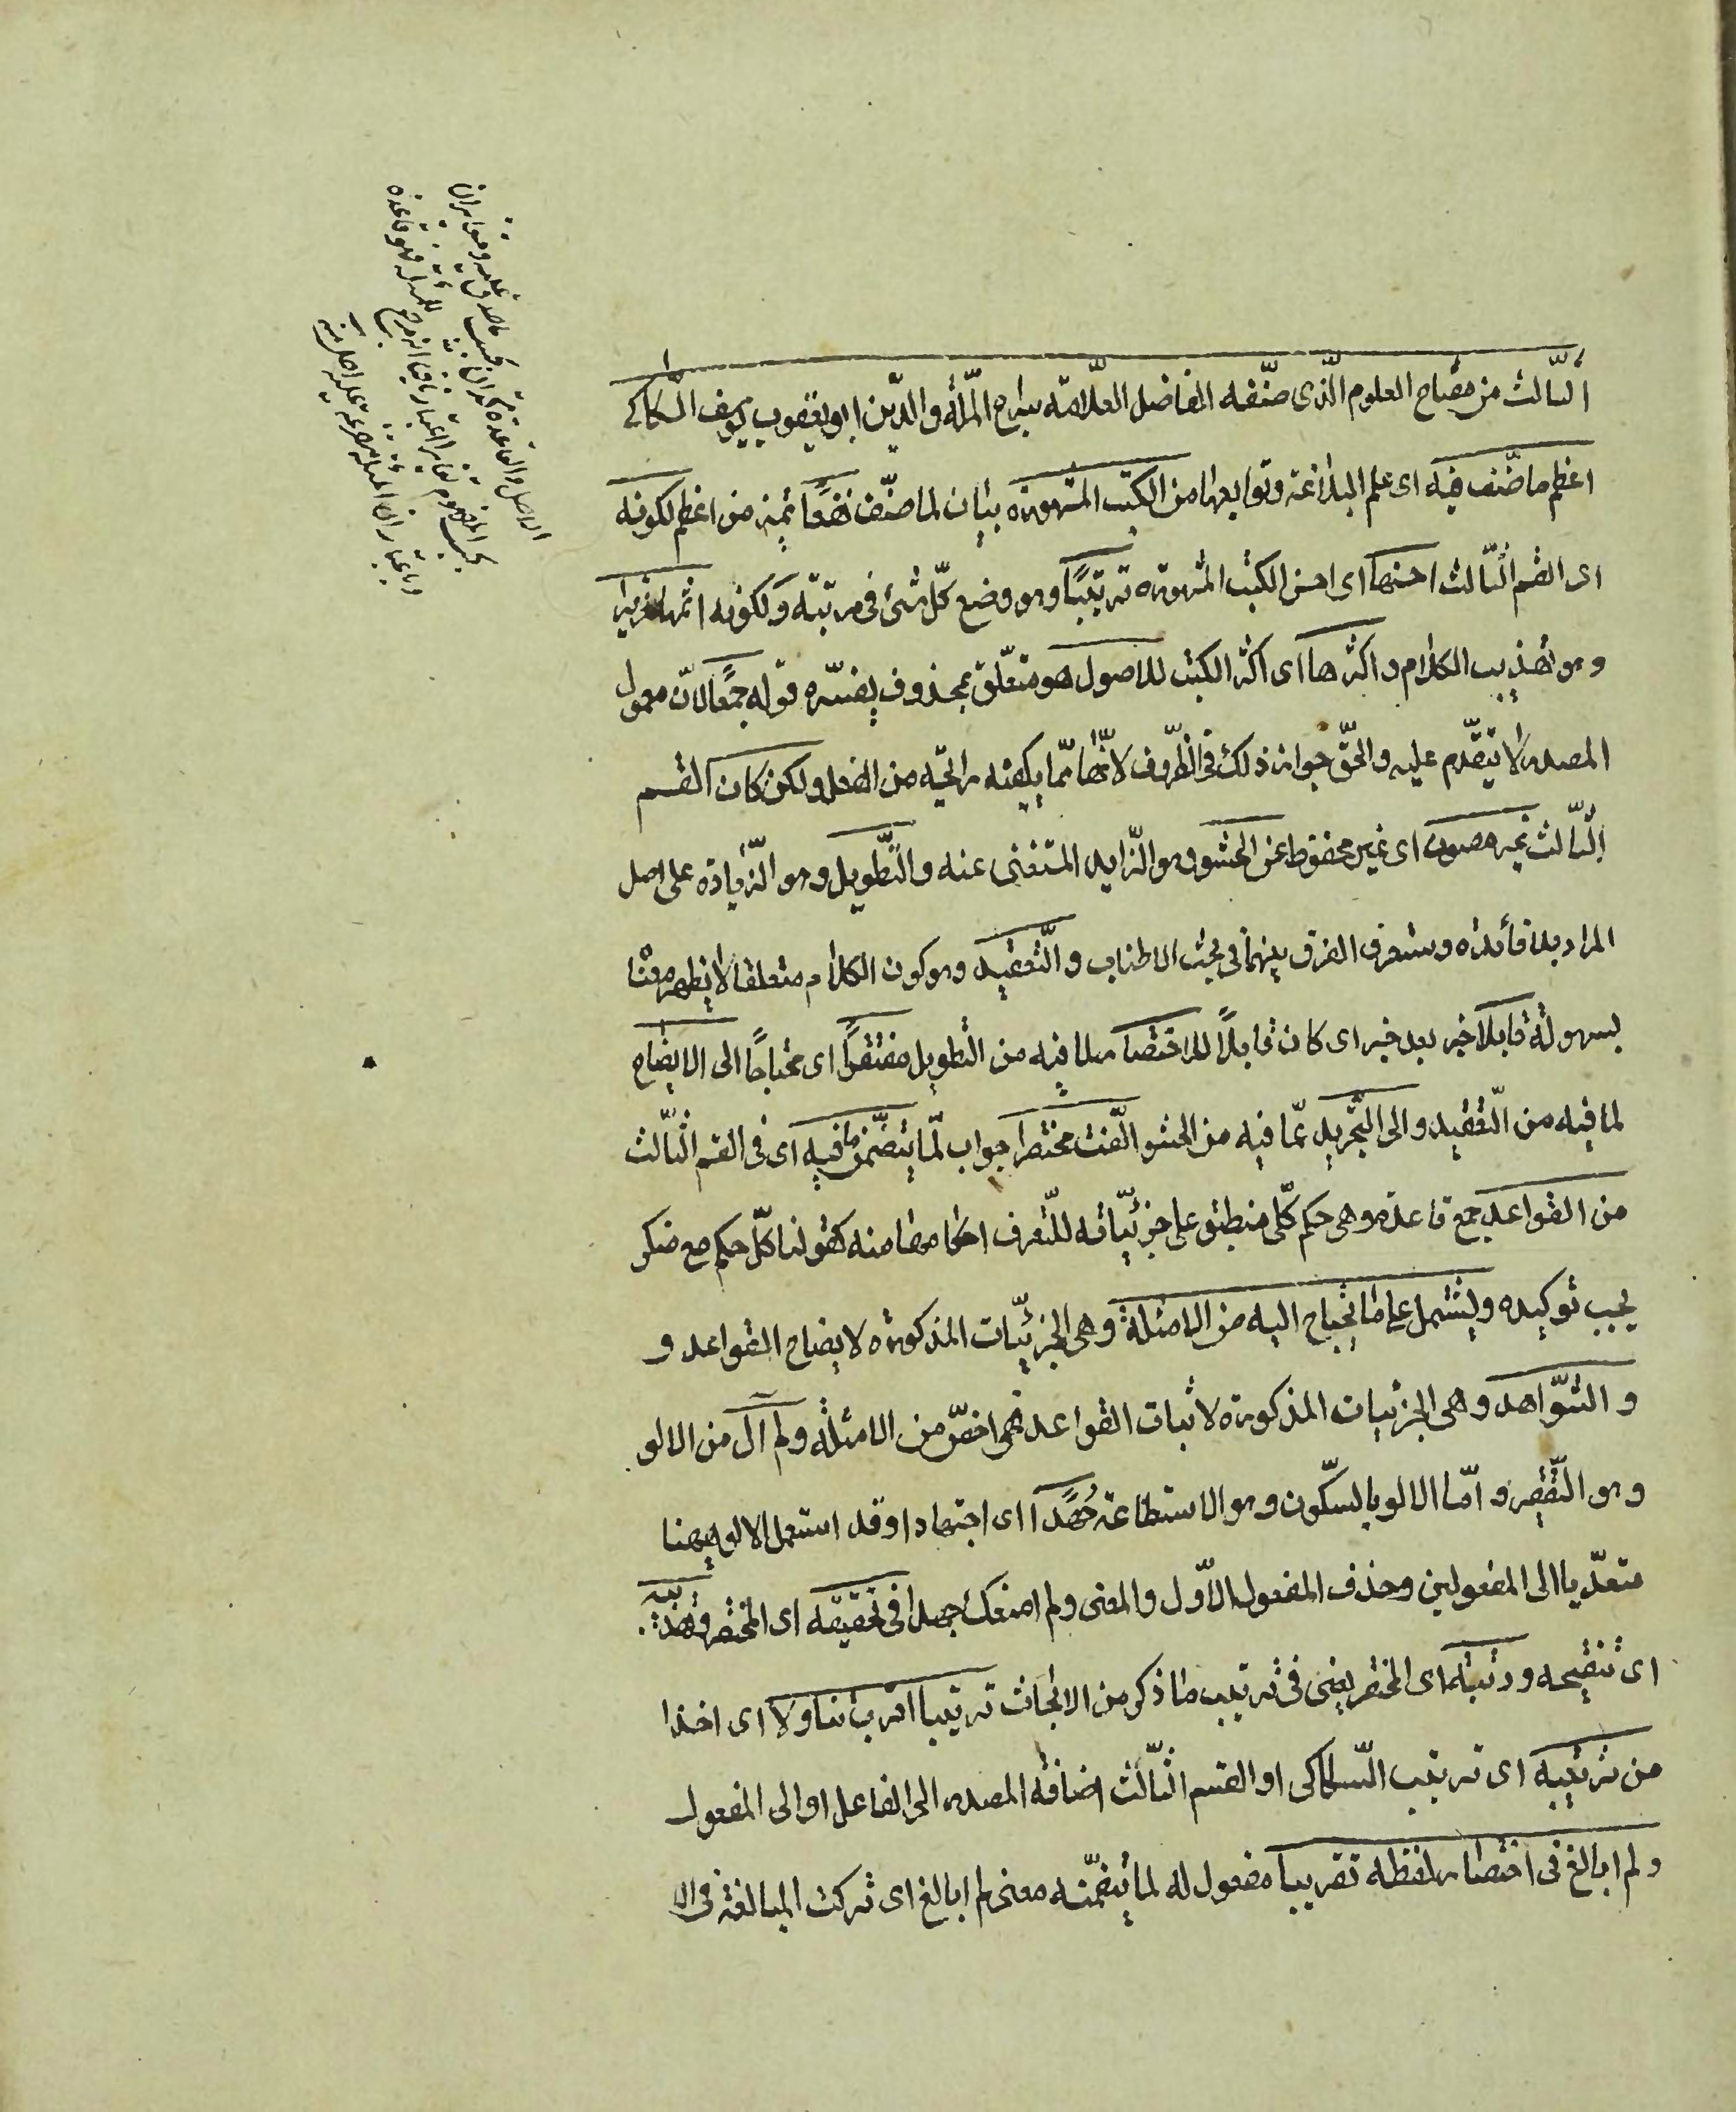 الثالث من مفتاح العلوم الّذى صنّفه الفاضل العلّامة سراج الملّة والدّين ابو يعقوب يوسف السّكاكى
اعظم ما صنّف فيه اى علم البلاغة وتوابعها من الكتب المشهورة بيان لما صنّف نفعًا تميز من اعظم لكونه
اى القسم الثّالث احسنها اى احسن الكتب المشهورة ترتيبًا وهو وضع كلّ شئ فى مرتبته ولكونه اتمها تحريرا
وهو تهذيب الكلام واكثرها اى اكثر الكتب للاصول هو متعلّق بمحذوف يفسّره قوله جمعًا لانّ معمول
المصدر لا يتقدّم عليه والحقّ جواز ذلك فى الظّروف لانّها ممّا يكفيه رائحة من الفعل ولكن كان القسم
الثّالث غير مصون اى غير محفوظ عن الحشو وهو الزّايد المستغنى عنه والتّطويل وهو الزّيادة على اصل
المراد بلا فائدة وستعرف الفرق بينهما فى بحث الاطناب والتّعقيد وهو كون الكلام متعلقا لا يظهر معنا
بسهولة قابلا خبر بعد خبر اى كان قابلًا للاختصار لما فيه من التطويل مفتقرًا اى محتاجًا الى الايضاح
لما فيه من التّعقيد والى التّجريد عمّا فيه من الحشو الّفت مختصرا جواب لمّا يتضمّن ما فيه اى فى القسم الثّالث
من القواعد جمع قاعدة وهى حكم كلّى منطبق على جزئيّاته للتّعرف احكامها منه كقولنا كلّ حكم مع منكر
يجب توكيده ويشتمل على ما يحتاج اليه من الامثلة وهى الجزئيّات المذكورة لايضاح القواعد و
والشّواهد وهى الجزئيات المذكورة لاثبات القواعد فهى اخصّ من الامثلة ولم آل من الالو
وهو التّقصير وامّا الالو بالسكّون وهو الاستطاعة جُهدًا اى اجتهادا وقد استعمل الالو ههنا
متعدّيا الى المفعولين وحذف المفعول الاوّل والمعنى ولم امنعك جهدا فى تحقيقه اى المختصر وتهذيبه
اى تنقيحه ورتبته اى المختصر يعنى فى ترتيب ما ذكر من الابحاث ترتيبا اقرب تناولا اى اخذا
من ترتيبه اى ترتيب السّكاكى او القسم الثّالث اضافة المصدر الى الفاعل او الى المفعول
ولم ابالغ فى اختصار لفظه تقريبا مفعول له لما يتضمّنه معنى لم ابالغ اى تركت المبالغة فى الا